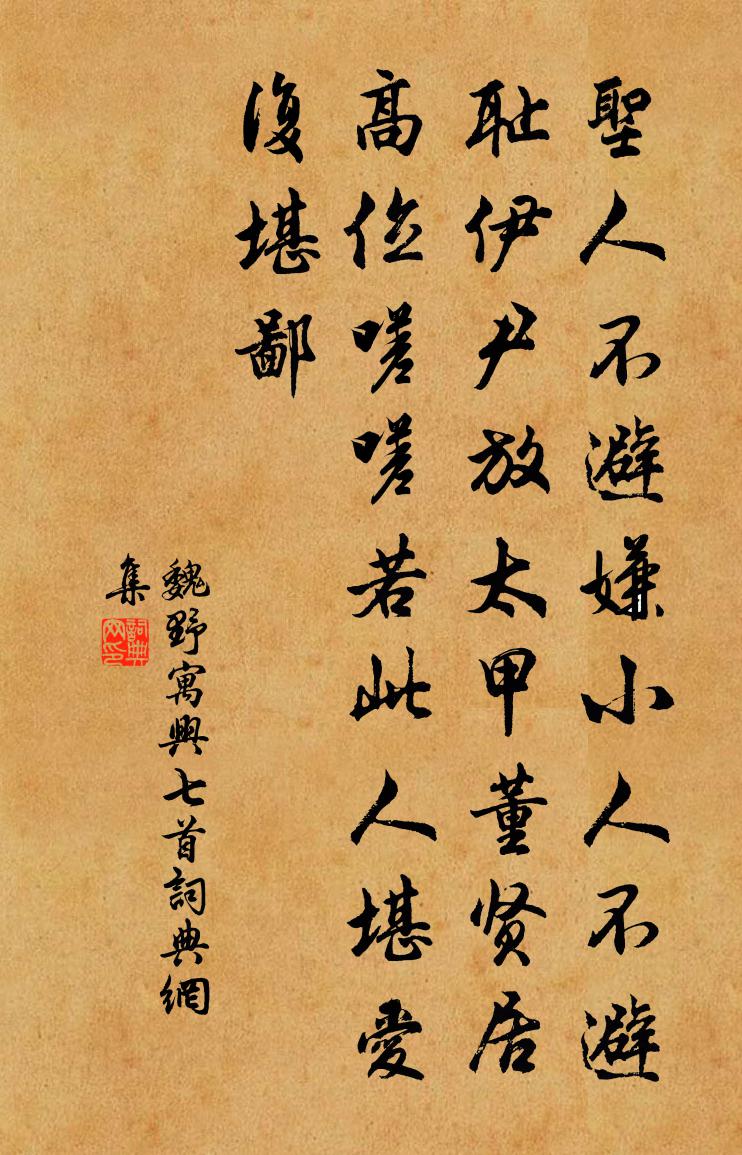 聖人不避嫌小人不避
耻伊尹放太甲董贤居
高位嗟嗟若此人堪愛
復堪鄙
魏野寓興七首詞典網
集
詞典網印